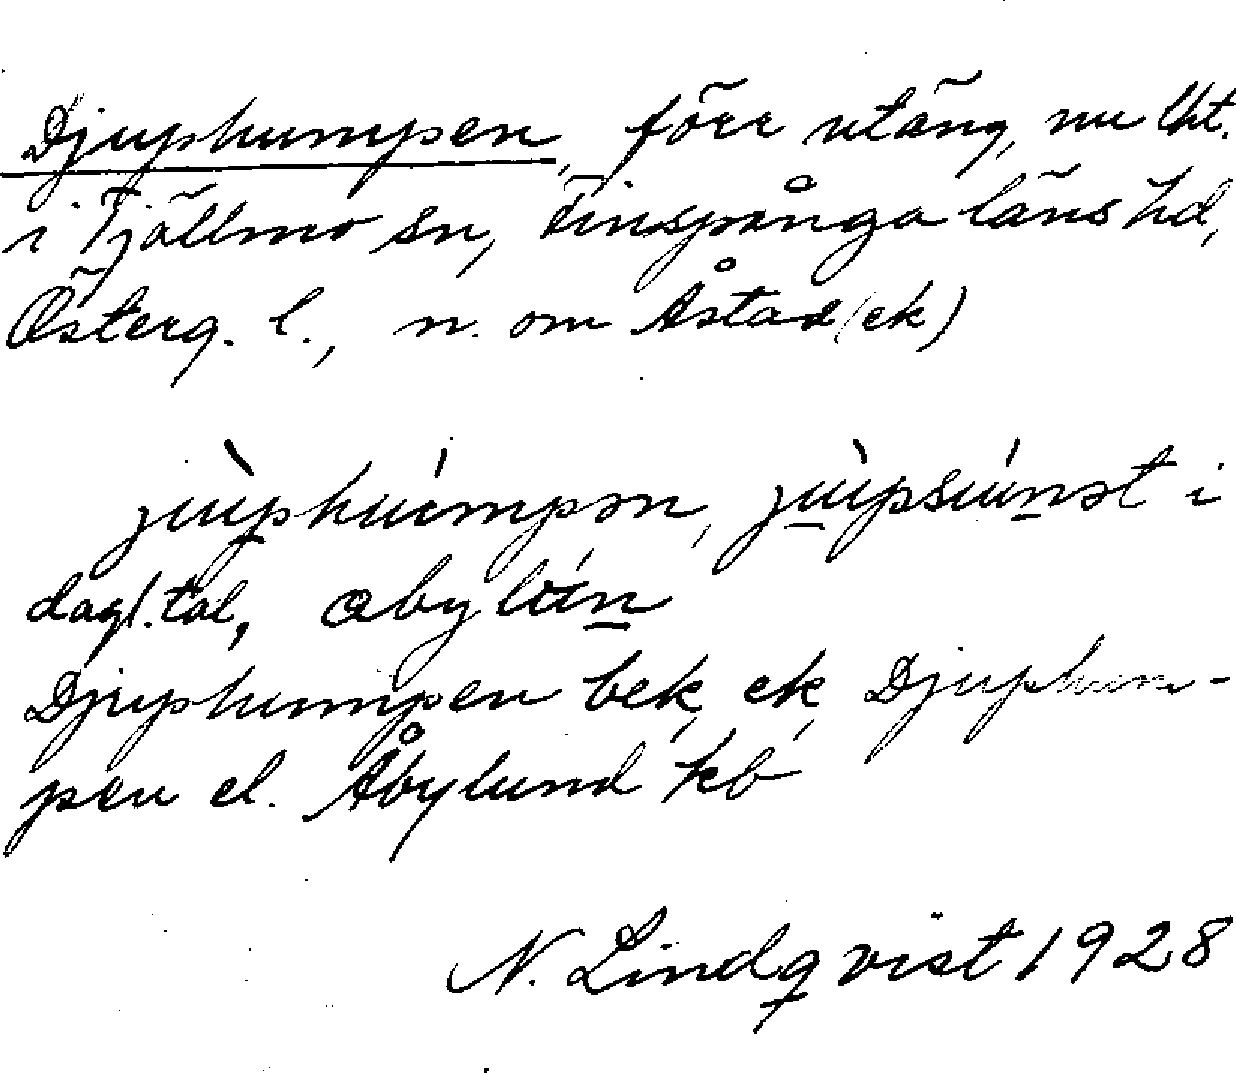 Djuphumpen, förr utäng, nu lht.
i Tjällmo sn, Finspånga läns hd,
Österg. l., n. om Åstad (ek)
jùphúmpən, jùpsúnət i
dagl. tal,
Djuphumpen bek, ek, Djuphum-
pen el. Åbylund kb
N. Lindqvist 1928